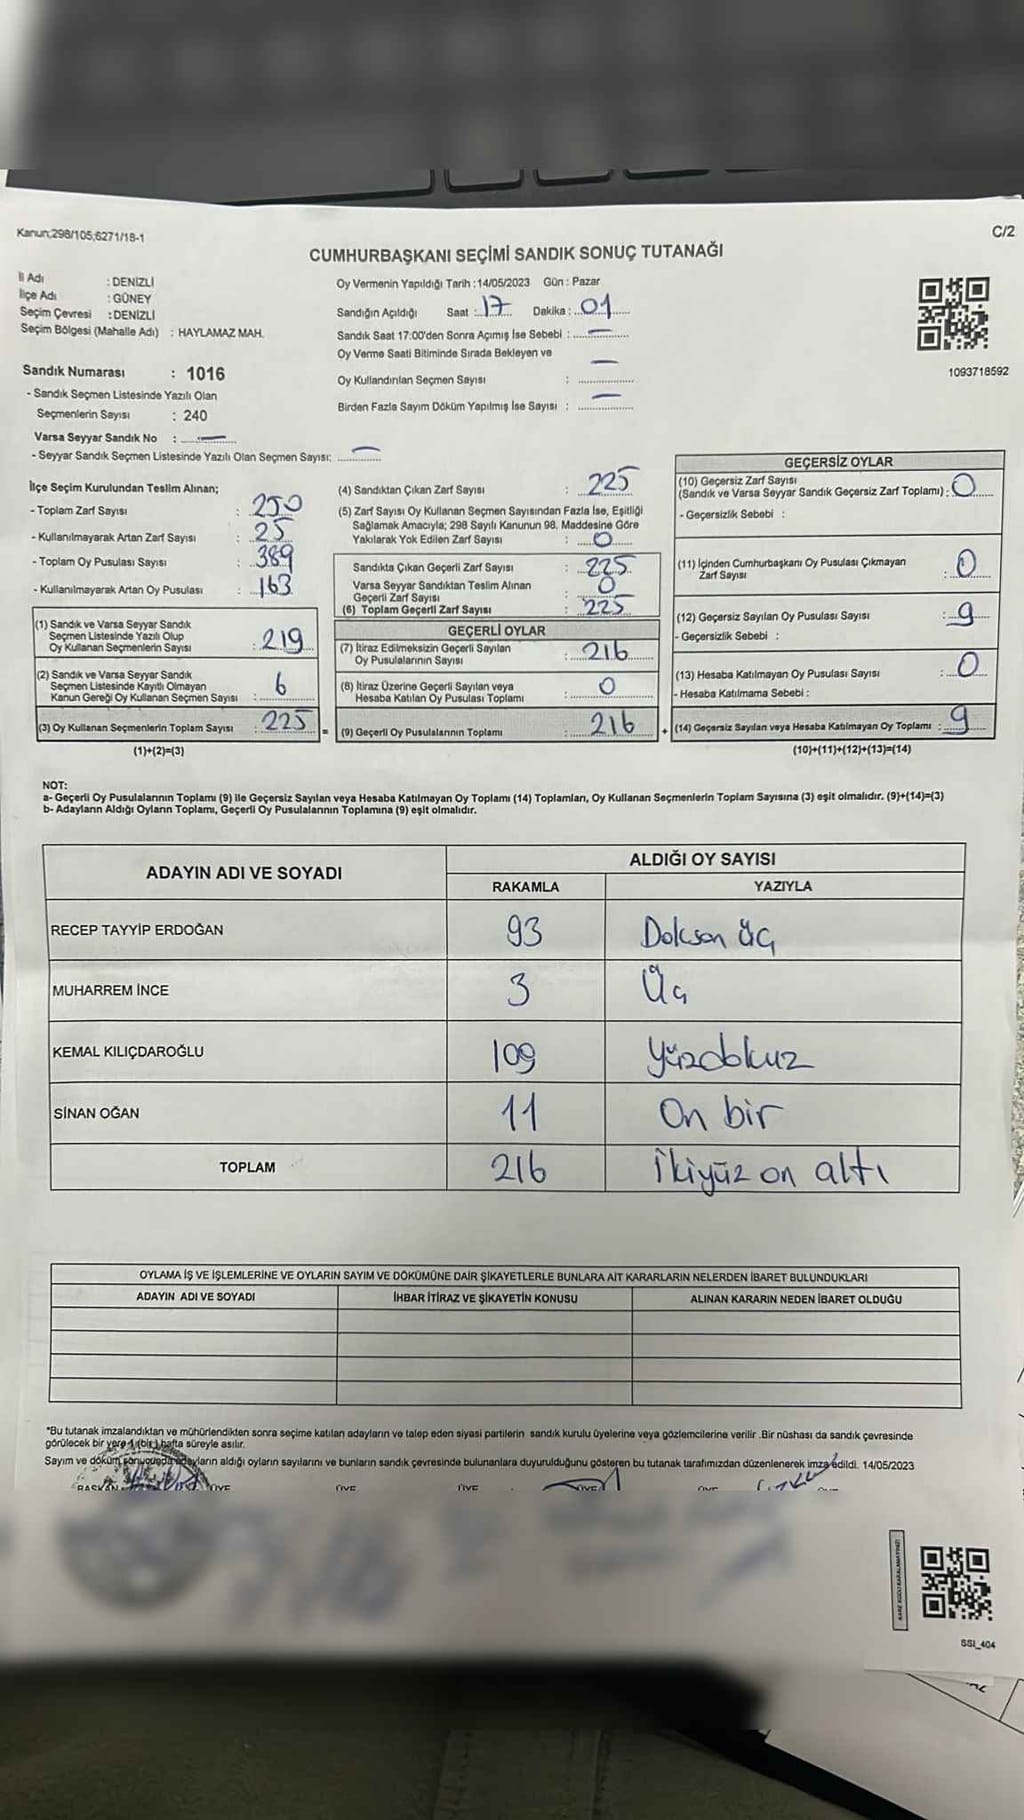 Kanun;298/105;6271/18-1
C/2
CUMHURBAŞKANI SEÇİMİ SANDIK SONUÇ TUTANAĞI
İl Adı : DENİZLİ
İlçe Adı : GÜNEY
Seçim Çevresi : DENİZLİ
Seçim Bölgesi (Mahalle Adı) : HAYLAMAZ MAH.
Sandık Numarası : 1016
- Sandık Seçmen Listesinde Yazılı Olan
Seçmenlerin Sayısı : 240
Varsa Seyyar Sandık No : —
- Seyyar Sandık Seçmen Listesinde Yazılı Olan Seçmen Sayısı: —
Oy Vermenin Yapıldığı Tarih : 14/05/2023 Gün : Pazar
Sandığın Açıldığı Saat : 17 Dakika : 01
Sandık Saat 17:00'den Sonra Açımış İse Sebebi : —
Oy Verme Saati Bitiminde Sırada Bekleyen ve
Oy Kullandırılan Seçmen Sayısı : —
Birden Fazla Sayım Döküm Yapılmış İse Sayısı : —
1093718592
İlçe Seçim Kurulundan Teslim Alınan;
- Toplam Zarf Sayısı : 250
- Kullanılmayarak Artan Zarf Sayısı : 25
- Toplam Oy Pusulası Sayısı : 389
- Kullanılmayarak Artan Oy Pusulası : 163
(1) Sandık ve Varsa Seyyar Sandık
Seçmen Listesinde Yazılı Olup
Oy Kullanan Seçmenlerin Sayısı : 219
(2) Sandık ve Varsa Seyyar Sandık
Seçmen Listesinde Kayıtlı Olmayan
Kanun Gereği Oy Kullanan Seçmen Sayısı : 6
(3) Oy Kullanan Seçmenlerin Toplam Sayısı : 225
(1)+(2)=(3)
(4) Sandıktan Çıkan Zarf Sayısı : 225
(5) Zarf Sayısı Oy Kullanan Seçmen Sayısından Fazla İse, Eşitliği
Sağlamak Amacıyla; 298 Sayılı Kanunun 98. Maddesine Göre
Yakılarak Yok Edilen Zarf Sayısı : 0
Sandıkta Çıkan Geçerli Zarf Sayısı : 225
Varsa Seyyar Sandıktan Teslim Alınan
Geçerli Zarf Sayısı : 0
(6) Toplam Geçerli Zarf Sayısı : 225
GEÇERLİ OYLAR
(7) İtiraz Edilmeksizin Geçerli Sayılan
Oy Pusulalarının Sayısı : 216
(8) İtiraz Üzerine Geçerli Sayılan veya
Hesaba Katılan Oy Pusulası Toplamı : 0
= (9) Geçerli Oy Pusulalarının Toplamı : 216
GEÇERSİZ OYLAR
(10) Geçersiz Zarf Sayısı
(Sandık ve Varsa Seyyar Sandık Geçersiz Zarf Toplamı) : 0
- Geçersizlik Sebebi :
(11) İçinden Cumhurbaşkanı Oy Pusulası Çıkmayan
Zarf Sayısı : 0
(12) Geçersiz Sayılan Oy Pusulası Sayısı : 9
- Geçersizlik Sebebi :
(13) Hesaba Katılmayan Oy Pusulası Sayısı : 0
- Hesaba Katılmama Sebebi :
+ (14) Geçersiz Sayılan veya Hesaba Katılmayan Oy Toplamı : 9
(10)+(11)+(12)+(13)=(14)
NOT:
a- Geçerli Oy Pusulalarının Toplamı (9) ile Geçersiz Sayılan veya Hesaba Katılmayan Oy Toplamı (14) Toplamları, Oy Kullanan Seçmenlerin Toplam Sayısına (3) eşit olmalıdır. (9)+(14)=(3)
b- Adayların Aldığı Oyların Toplamı, Geçerli Oy Pusulalarının Toplamına (9) eşit olmalıdır.
ADAYIN ADI VE SOYADI
ALDIĞI OY SAYISI
RAKAMLA YAZIYLA
RECEP TAYYİP ERDOĞAN 93 Doksan üç
MUHARREM İNCE 3 Üç
KEMAL KILIÇDAROĞLU 109 Yüzdokuz
SİNAN OĞAN 11 On bir
TOPLAM 216 İkiyüz on altı
OYLAMA İŞ VE İŞLEMLERİNE VE OYLARIN SAYIM VE DÖKÜMÜNE DAİR ŞİKAYETLERLE BUNLARA AİT KARARLARIN NELERDEN İBARET BULUNDUKLARI
ADAYIN ADI VE SOYADI İHBAR İTİRAZ VE ŞİKAYETİN KONUSU ALINAN KARARIN NEDEN İBARET OLDUĞU
*Bu tutanak imzalandıktan ve mühürlendikten sonra seçime katılan adayların ve talep eden siyasi partilerin sandık kurulu üyelerine veya gözlemcilerine verilir .Bir nüshası da sandık çevresinde
görülecek bir yere 1 (bir) hafta süreyle asılır.
Sayım ve döküm sonucunda adayların aldığı oyların sayılarını ve bunların sandık çevresinde bulunanlara duyurulduğunu gösteren bu tutanak tarafımızdan düzenlenerek imza edildi. 14/05/2023
BAŞKAN ÜYE ÜYE ÜYE ÜYE ÜYE ÜYE
SSI_404